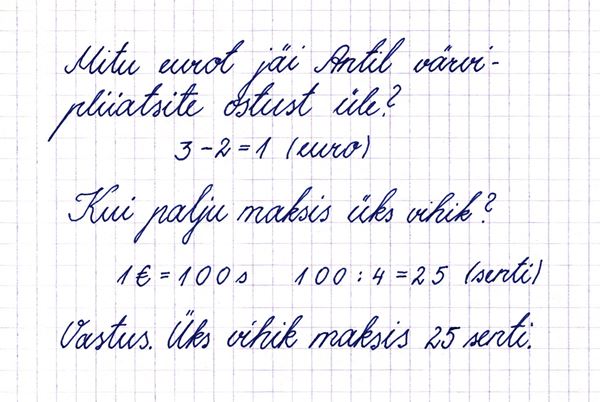 Mitu eurot jäi Antil värvi-
pliiatsite ostust üle?
3 - 2 = 1 (euro)
Kui palju maksis üks vihik?
1 € = 100 s 100 : 4 = 25 (senti)
Vastus. Üks vihik maksis 25 senti.